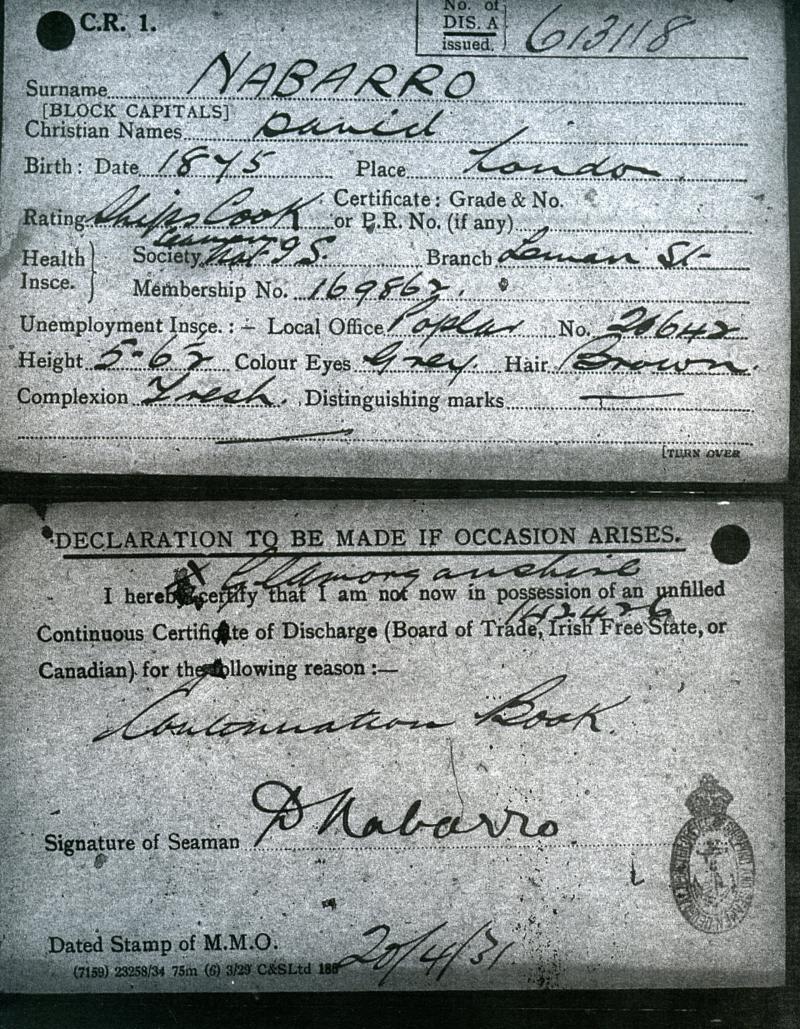 C.R. 1.
No. of
DIS. A
issued. 613118
Surname NABARRO
[BLOCK CAPITALS]
Christian Names David
Birth: Date 1875 Place London
Certificate: Grade & No.
Rating Ships Cook or P.R. No. (if any)
Health Insce. Society Nat I S. Branch Leman St
Membership No. 169862.
Unemployment Insce.:— Local Office Poplar No. 20642
Height 5-6½ Colour Eyes Grey. Hair Brown.
Complexion Fresh. Distinguishing marks —
[TURN OVER
DECLARATION TO BE MADE IF OCCASION ARISES.
Glamorganshire
I hereby certify that I am not now in possession of an unfilled
142426
Continuous Certificate of Discharge (Board of Trade, Irish Free State, or
Canadian) for the following reason:—
Continuation Book.
Signature of Seaman D Nabarro
Dated Stamp of M.M.O. 20/4/31
(7159) 23258/34 75m (6) 3/29 C&SLtd 186